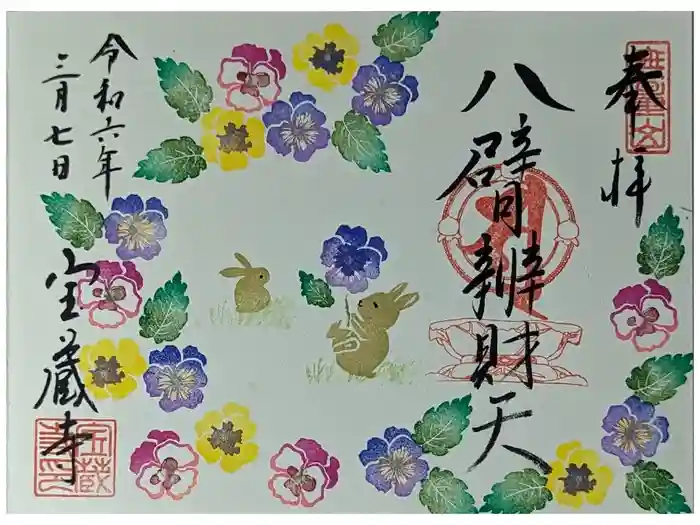 奉拝
八臂辨財天
令和六年
三月七日
宝蔵寺